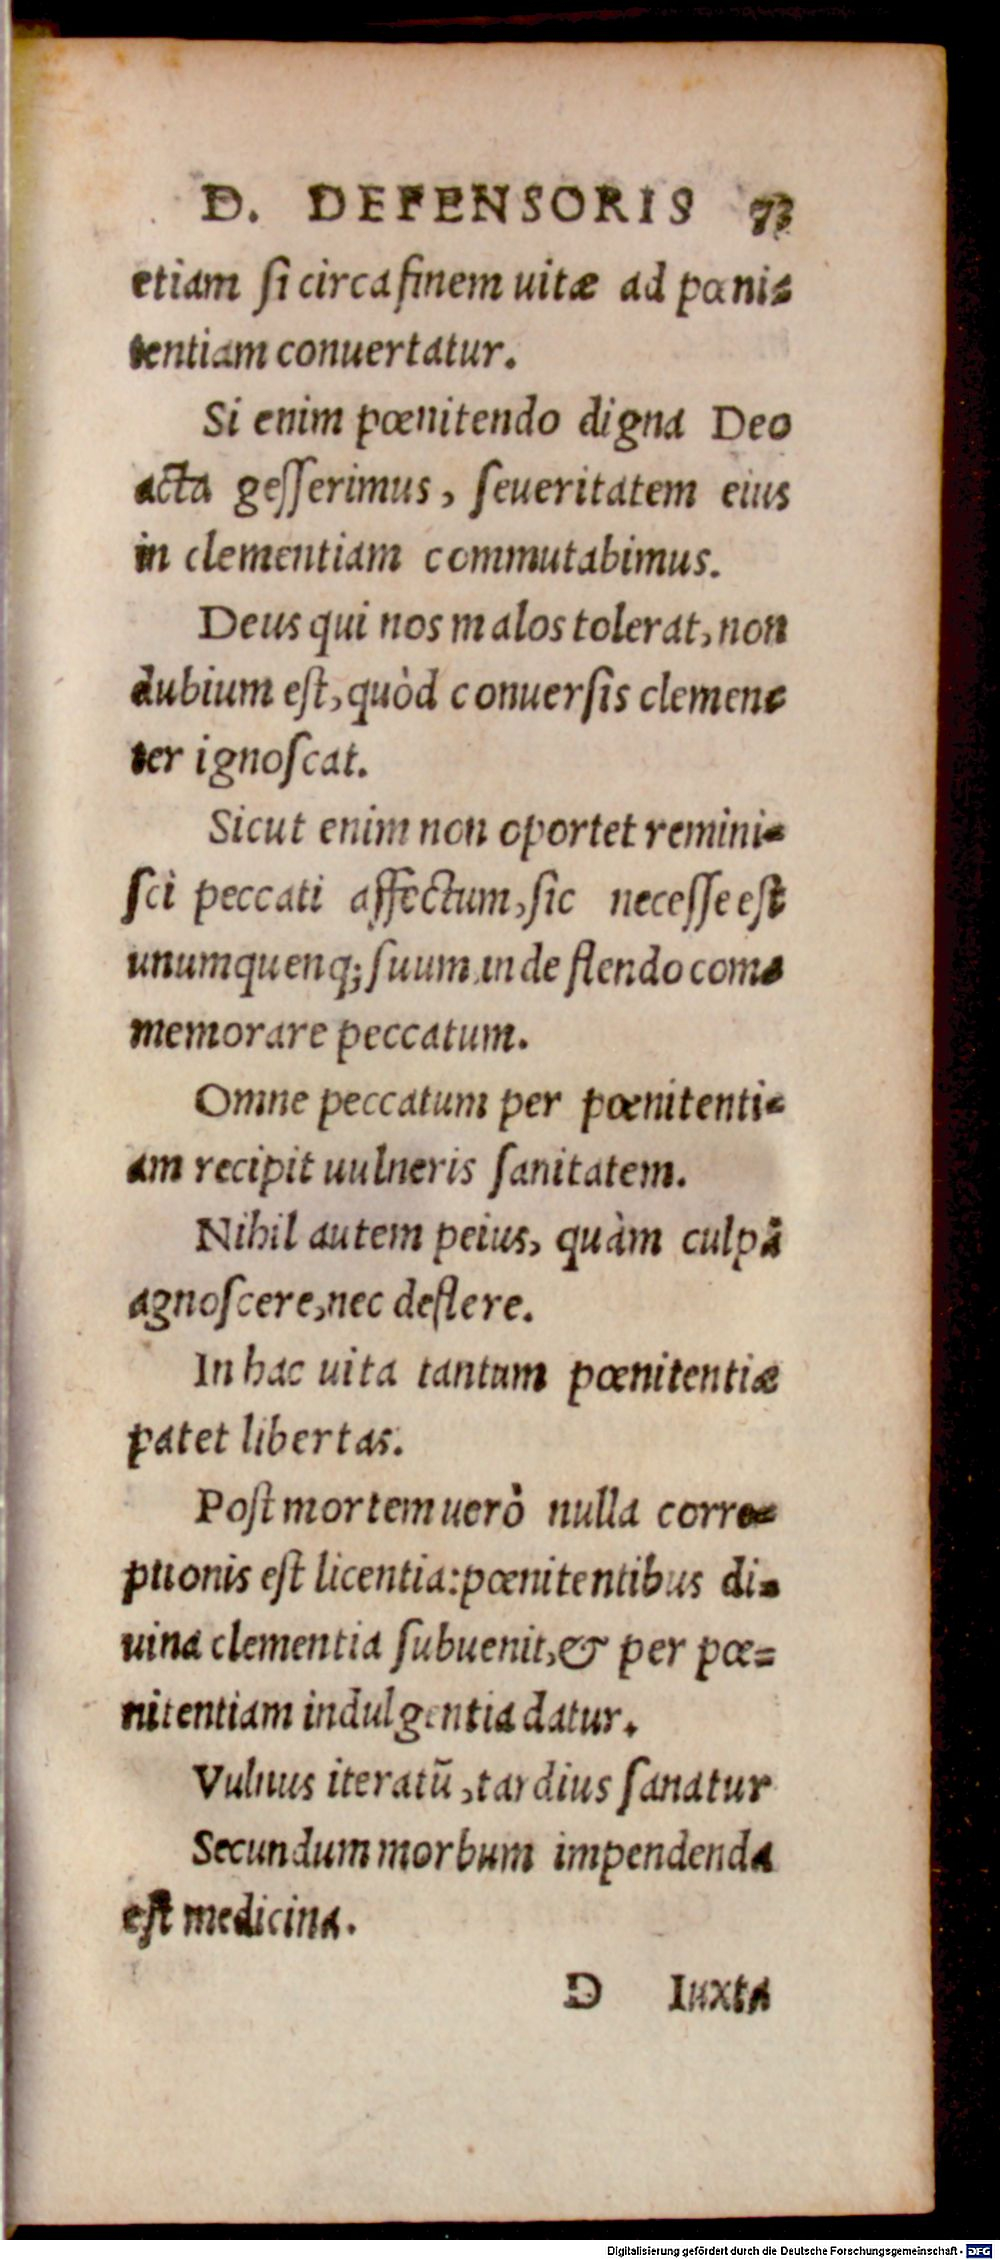 D. DEFENSORIS 73
etiam si circa finem uitæ ad pœni-
tentiam conuertatur.
Si enim pœnitendo digna Deo
acta gesserimus, seueritatem eius
in clementiam commutabimus.
Deus qui nos malos tolerat, non
dubium est, quòd conuersis clemen-
ter ignoscat.
Sicut enim non oportet remini-
sci peccati affectum, sic necesse est
unumquenq; suum inde flendo com-
memorare peccatum.
Omne peccatum per pœnitenti-
am recipit uulneris sanitatem.
Nihil autem peius, quàm culpã
agnoscere, nec deflere.
In hac uita tantum pœnitentiæ
patet libertas.
Post mortem uerò nulla corre-
ptionis est licentia: pœnitentibus di-
uina clementia subuenit, & per pœ-
nitentiam indulgentia datur.
Vulnus iteratũ, tardius sanatur
Secundum morbum impendenda
est medicina.
D Iuxta
Digitalisierung gefördert durch die Deutsche Forschungsgemeinschaft - DFG